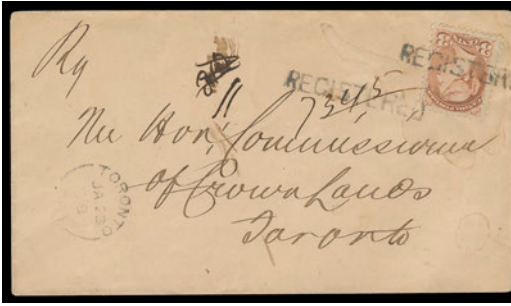 Rg
REGISTERED
REGISTERE
11
The Hon, Commissioner
of Crown Lands
Toronto
TORONTO
JA 23